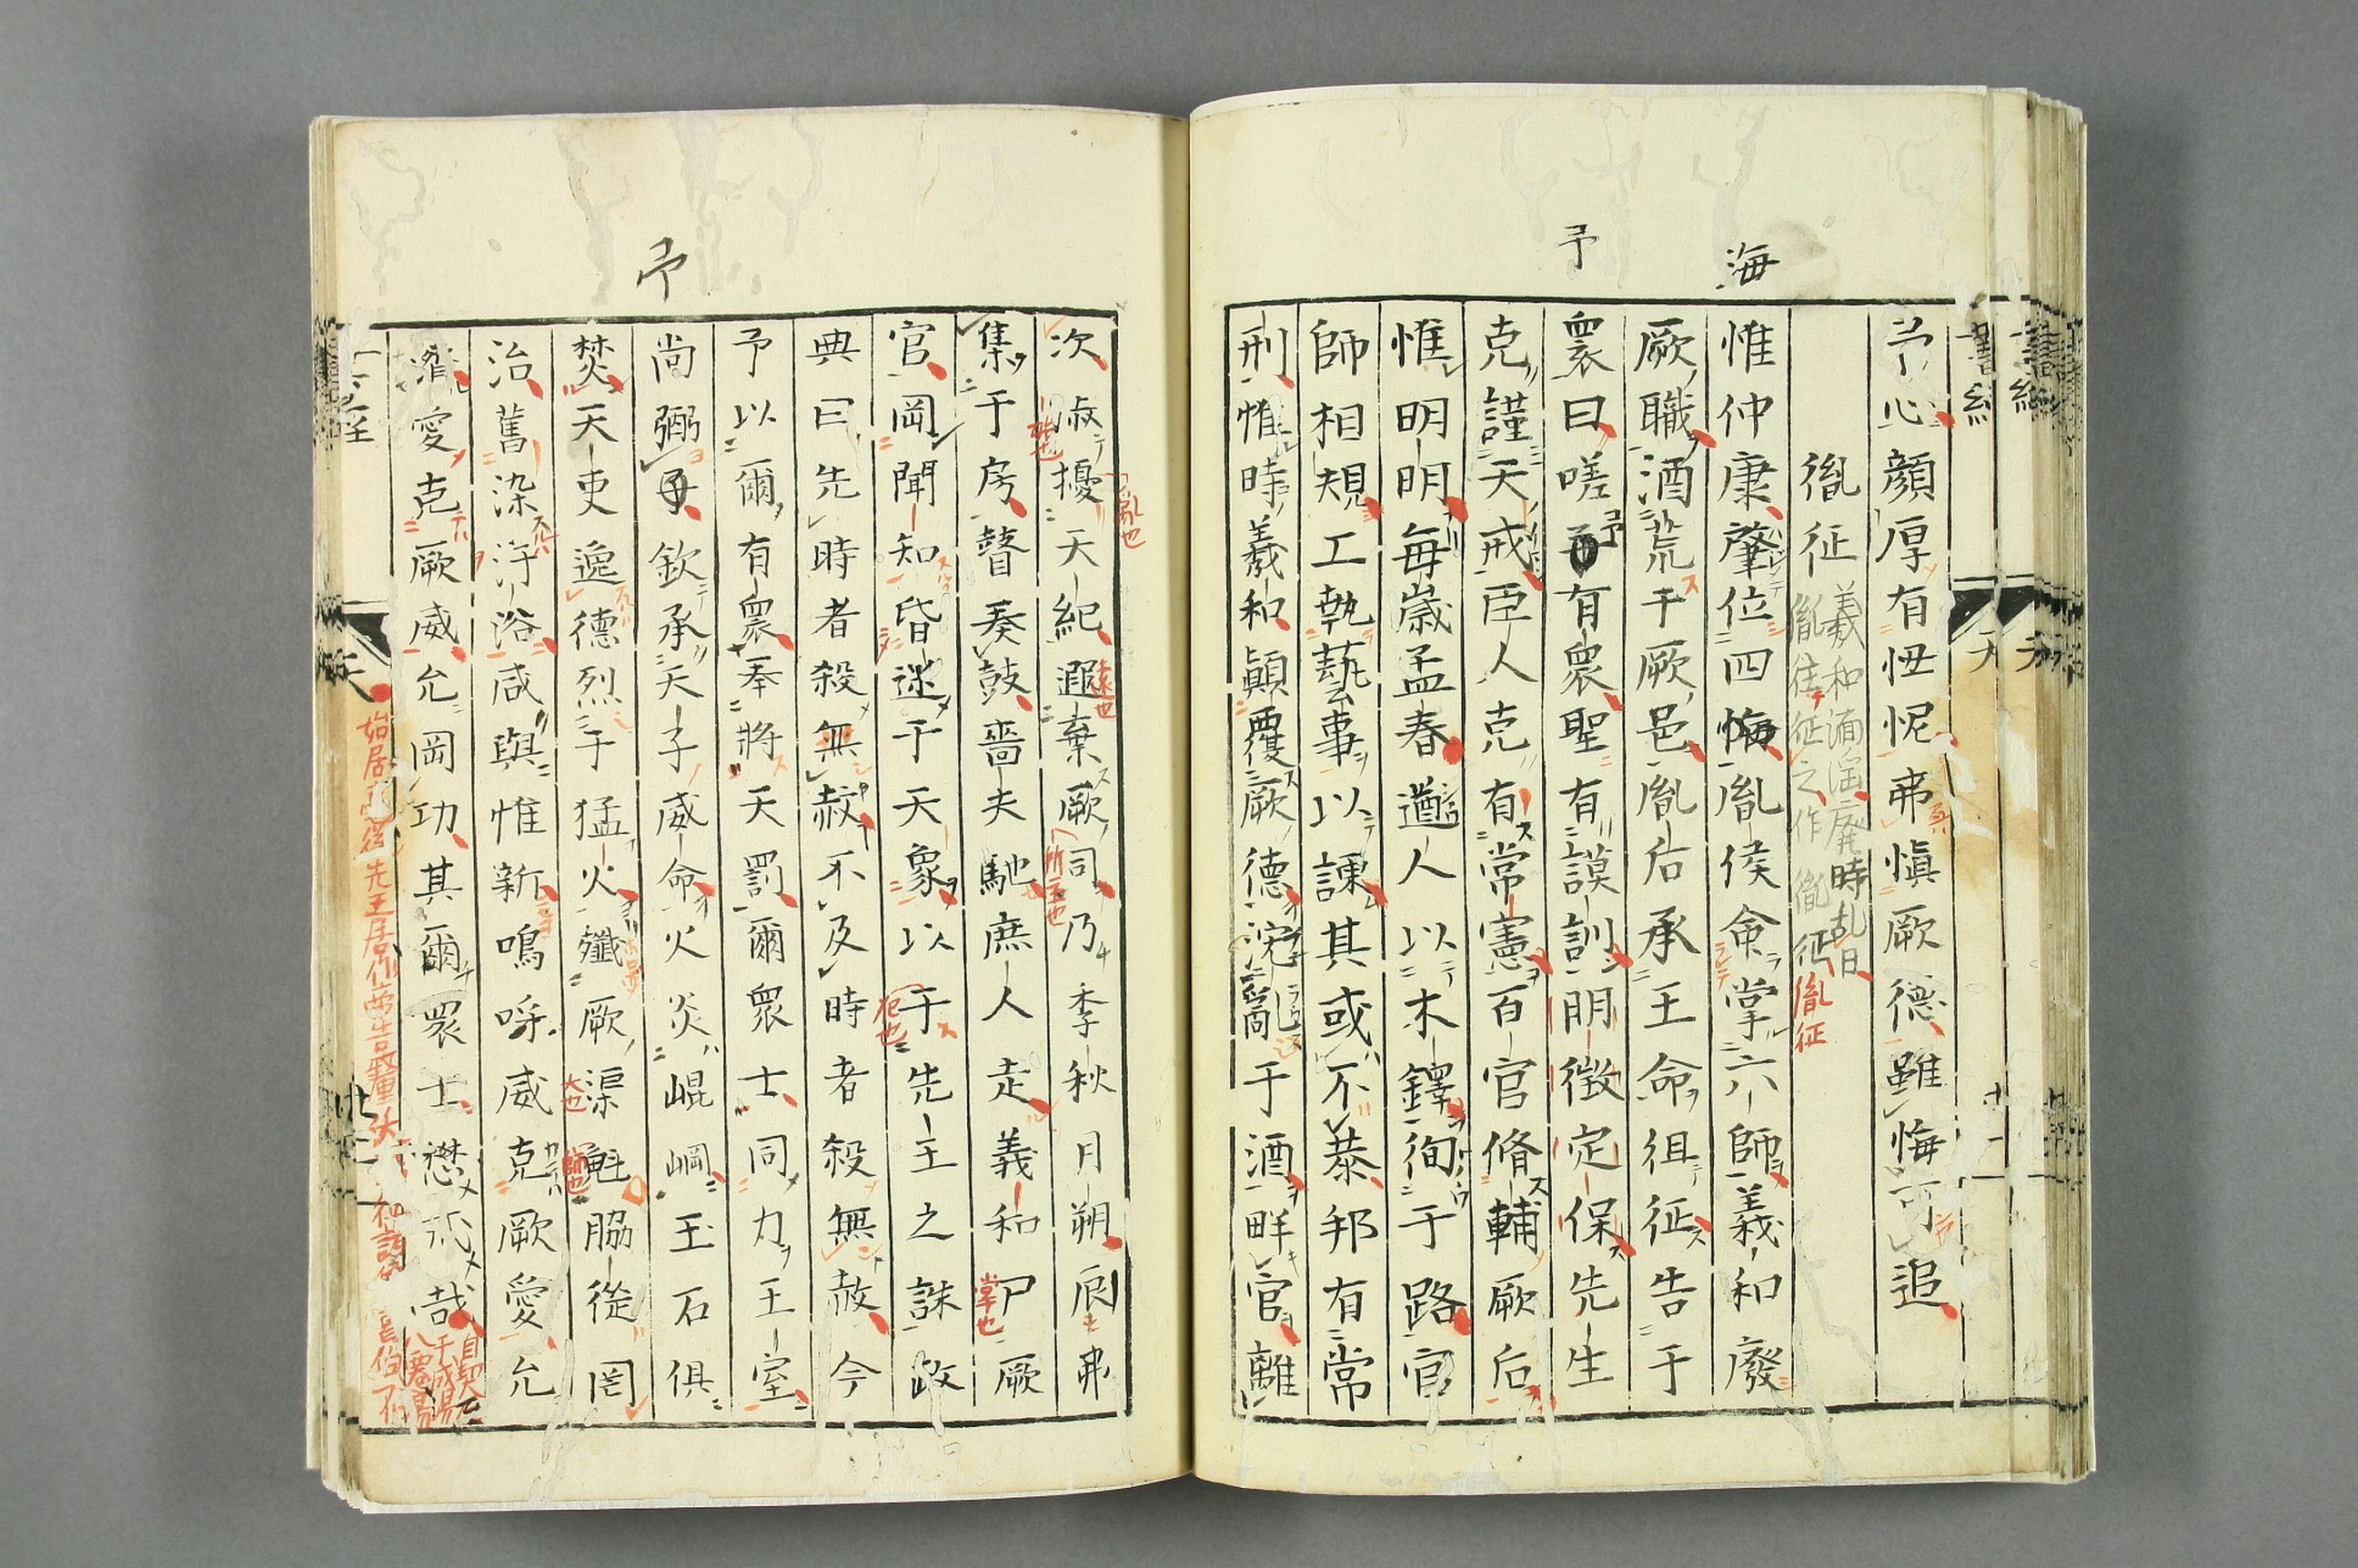 海
予
予心顔厚有忸怩弗愼厥德雖悔可追
胤征
羲和湎淫廢時乱日
胤往征之作胤征
胤征
惟仲康肇位四海胤侯命掌六師羲和廢
厥職酒荒于厥邑胤后承王命徂征告于
衆曰嗟予有衆聖有謨訓明徴定保先生
克謹天戒臣人克有常憲百官脩輔厥后
惟明明毎歳孟春遒人以木鐸徇于路官
師相規工執藝事以諌其或不恭邦有常
刑惟時羲和顚覆厥德沈亂于酒畔官離
予
次俶擾天紀遐棄厥司乃季秋月朔辰弗
始也
亂也
遠也
所主也
集于房瞽奏鼓嗇夫馳庶人走羲和尸厥
掌也
官罔聞知昏迷于天象以干先王之誅政
犯也
典曰先時者殺無赦不及時者殺無赦今
予以爾有衆奉將天罰爾衆士同力王室
尚弼予欽承天子威命火炎崐岡玉石俱
焚天吏逸德烈于猛火殲厥渠魁脇從罔
大也
帥也
治舊染汙俗咸與惟新嗚呼威克厥愛允
濟愛克厥威允罔功其爾衆士懋戒哉
自契至
于成湯
八遷湯
始居亳從先王居作帝告釐沃